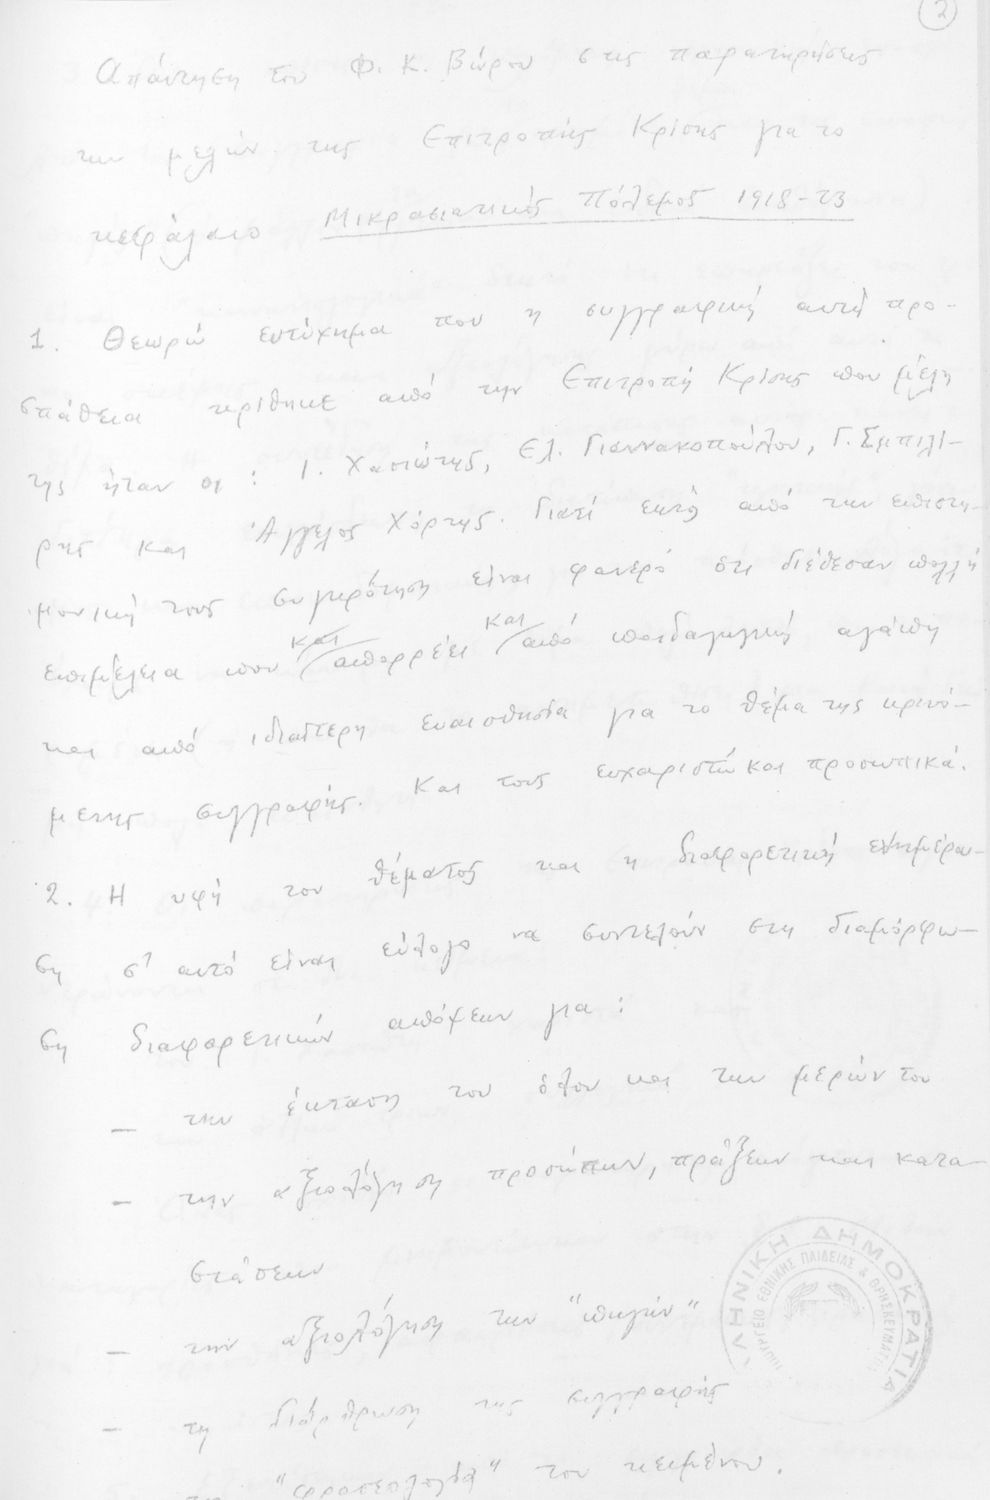 2
Απάντηση του Φ. Κ. Βώρου στις παρατηρήσεις
των μελών της Επιτροπής Κρίσης για το
κεφάλαιο Μικρασιατικός Πόλεμος 1918-23
1. Θεωρώ ευτύχημα που η συγγραφική αυτή προ-
σπάθεια κρίθηκε από την Επιτροπή Κρίσης που μέλη
της ήταν οι : Ι. Χασιώτης, Ελ. Γιαννακοπούλου, Γ. Σμπιλί-
ρης και Άγγελος Χόρτης. Γιατί εκτός από την επιστη-
μονική τους συγκρότηση είναι φανερό ότι διέθεσαν πολλή
επιμέλεια που και απορρέει και από παιδαγωγική αγάπη
και από ιδιαίτερη ευαισθησία για το θέμα της κρινό-
μενης συγγραφής. Και τους ευχαριστώ και προσωπικά.
2. Η υφή του θέματος και η διαφορετική ενημέρω-
ση σ' αυτό είναι εύλογο να συντελούν στη διαμόρφω-
ση διαφορετικών απόψεων για :
– την έκταση του όλου και των μερών του
– την αξιολόγηση προσώπων, πράξεων και κατα-
στάσεων
– την αξιολόγηση των "πηγών"
– τη διάρθρωση της συγγραφής
τη "φρασεολογία" του κειμένου.
ΛΗΝΙΚΗ ΔΗΜΟΚΡΑΤΙΑ
ΠΟΥΡΓΕΙΟ ΕΘΝΙΚΗΣ ΠΑΙΔΕΙΑΣ & ΘΡΗΣΚΕΥΜΑΤΩ